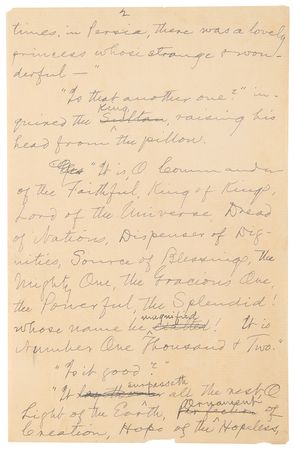 2
times, in Persia, there was a lovely
princess whose strange & won-
derful —"
"Is that another one?" in-
king,
quired the Sultan, raising his
head from the pillow.
Yes "It is, O Commander
of the Faithful, King of Kings,
Lord of the Universe, Dread
of Nations, Dispenser of Dig-
nities, Source of Blessing, the
Mighty One, the Gracious One,
the Powerful, the Splendid!
magnified
whose name be! It is
Number One Thousand & Two."
"Is it good?"
surpasseth
"It all the rest, O
Ornament
Light of the Earth, Perfection of
Creation, Hope of the Hopeless,